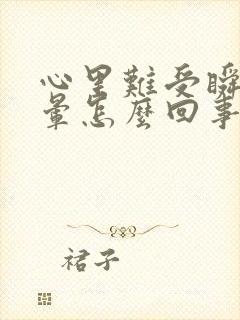 心里難受瞬
暈怎麼回事
裙子